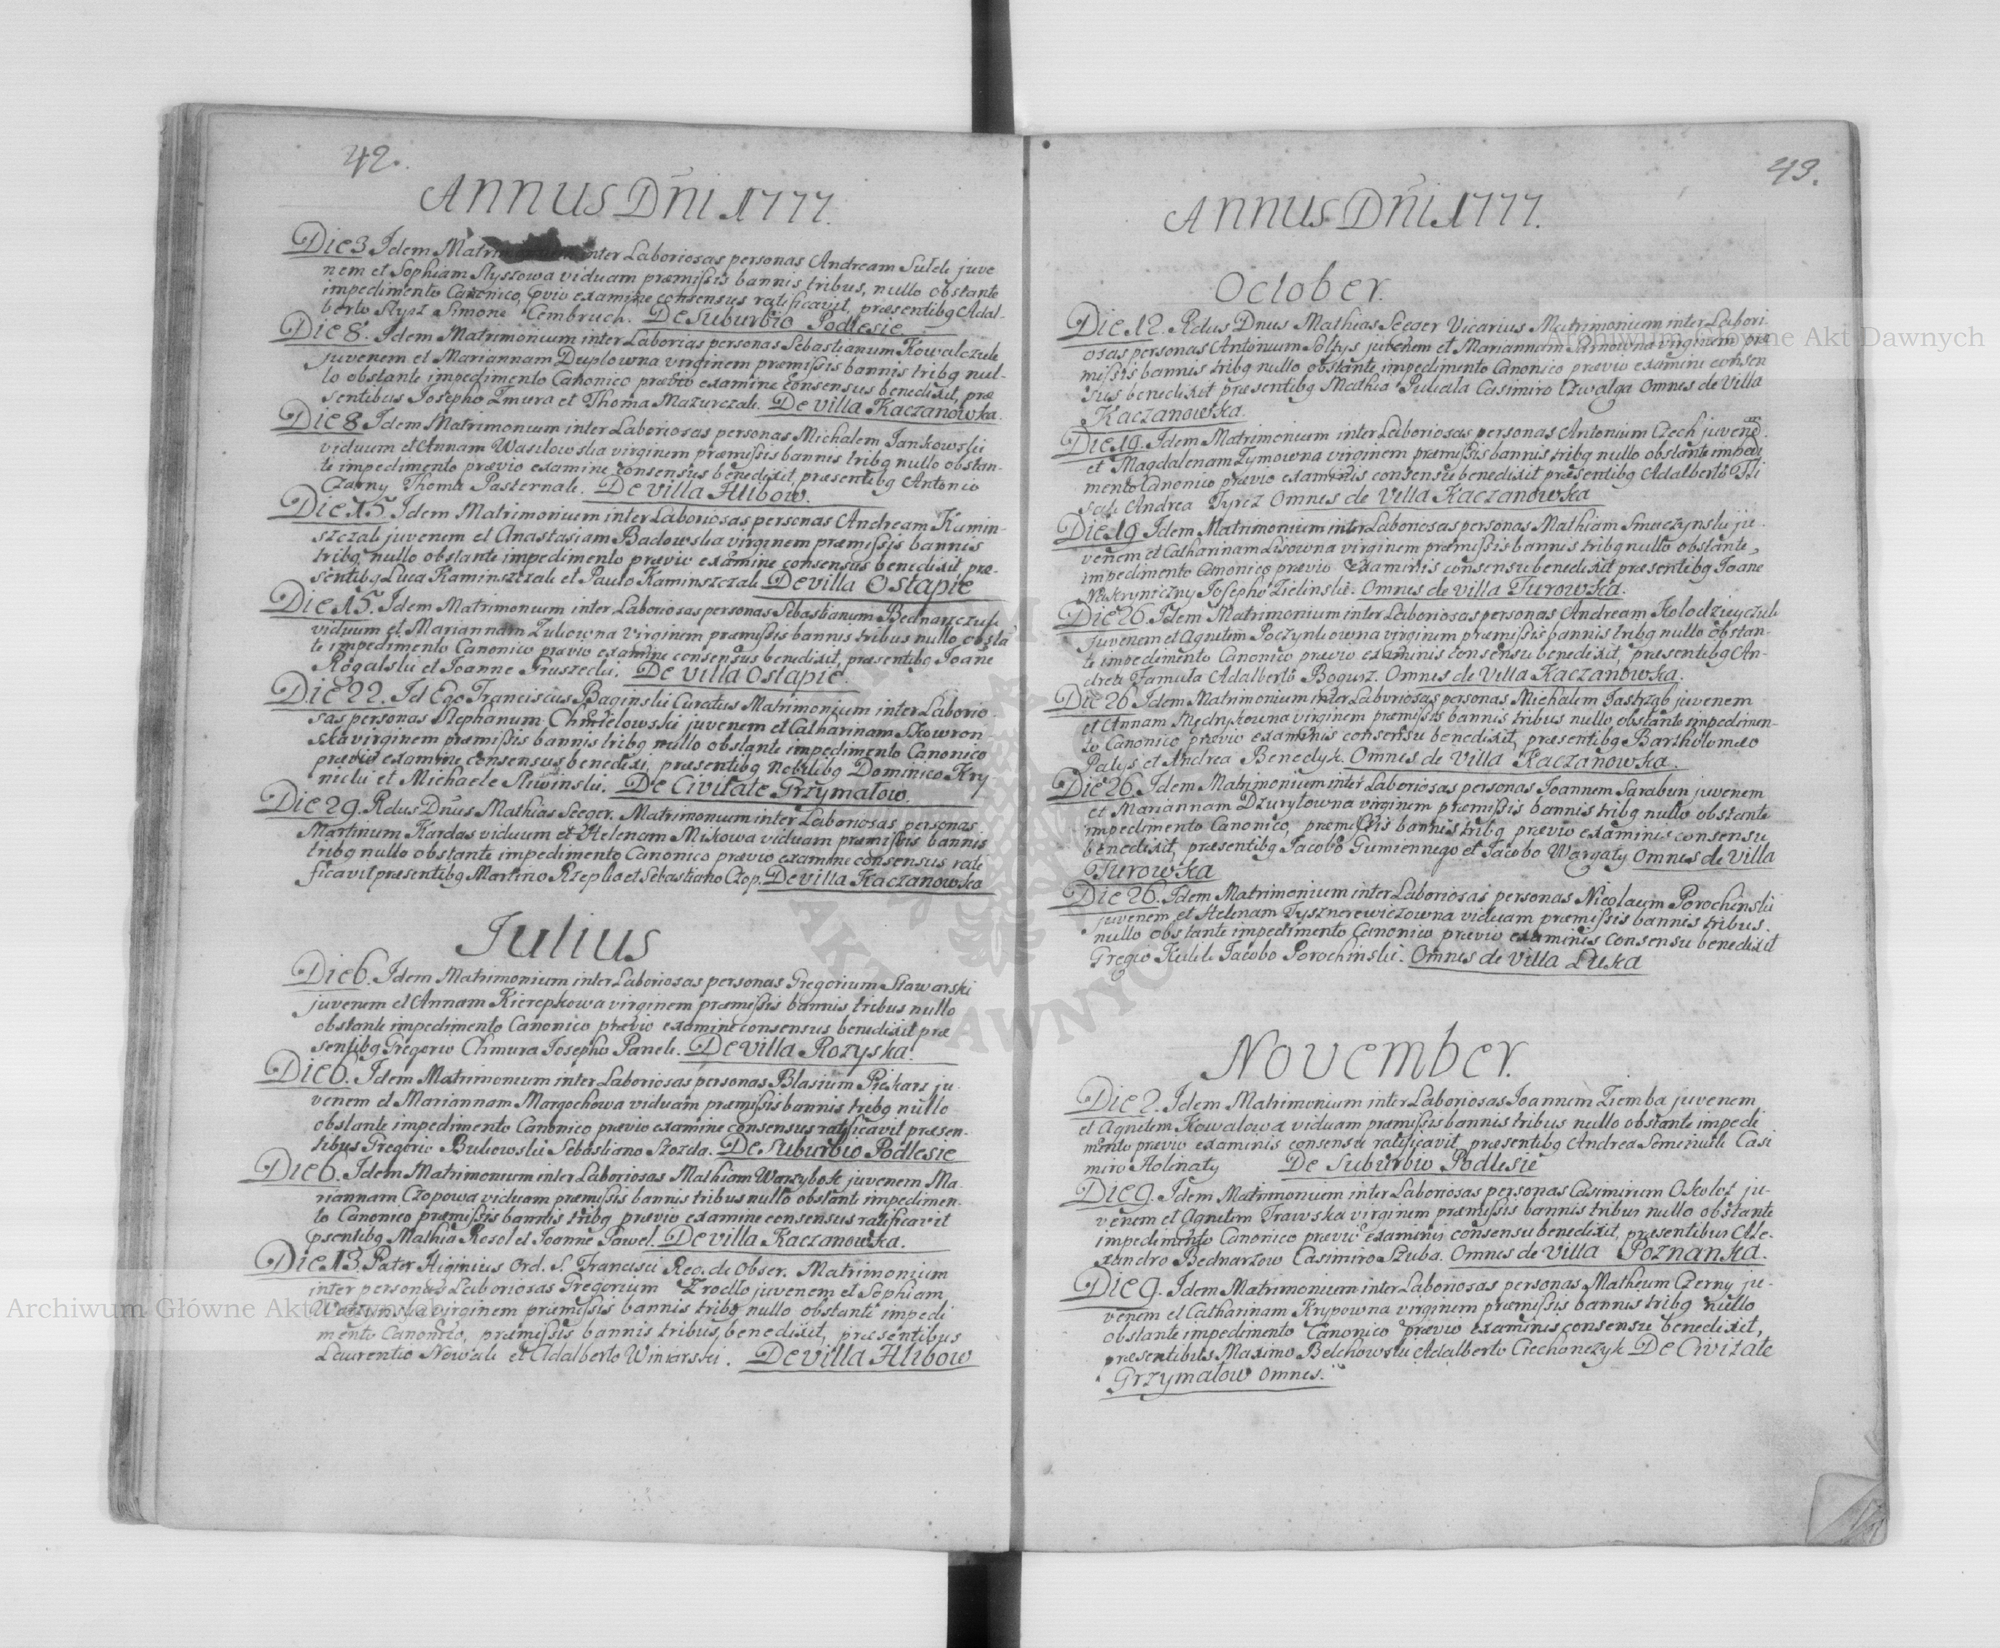 42.
ANNUS Dñi 1777.
Die 3 Idem inter Laboriosas personas Andream Sulek juve
nem et Sophiam Slyszowa viduam præmissis bannis tribus, nullo obstante
impedimento Canonico, pvio examine consensus ratificavit, præsentibq Adal-
berto Slysz Simone Cembruch. De Suburbio Podlesie
Die 8. Idem Matrimonium inter Laborias personas Sebastianum Kowalczuk
juvenem et Mariannam Duplowna virginem præmissis bannis tribq nul-
lo obstante impedimento Canonico prævio examine consensus benedixit, præ
sentibus Josepho Zmura et Thoma Mazurczak. De villa Kaczanowka.
Die 8 Idem Matrimonium inter Laboriosas personas Michalem Jankowski
viduum et Annam Wasilowska virginem præmissis bannis tribq nullo obstan-
te impedimento prævio examine consensus benedixit, præsentibq Antonio
Czarny Thoma Pasternak. De villa Hlibow.
Die 15. Idem Matrimonium inter Laboriosas personas Andream Kamin-
szczak juvenem et Anastasiam Badowska virginem præmissis bannis
tribq nullo obstante impedimento prævio examine consensus benedixit præ-
sentibq Luca Kaminszczak et Paulo Kaminszczak De villa Ostapie
Die 15. Idem Matrimonium inter Laboriosas personas Sebastianum Bednarczuk
viduum et Mariannam Zukowna virginem præmissis bannis tribus nullo obsta
te impedimento Canonico prævio examine consensus benedixit, præsentibq Joane
Rogalski et Joanne Gruszecki. De villa Ostapie.
Die 22. Id Ego Franciscus Baginski Curatus Matrimonium inter Laborio
sas personas Stephanum Chmielowski juvenem et Catharinam Skowron
ska virginem præmissis bannis tribq nullo obstante impedimento Canonico
prævio examine consensus benedixi, præsentibq nobilibq Dominico Kry
nicki et Michaele Sliwinski. De Civitate Grzymałow.
Die 29. Rdus Dnus Mathias Seeger. Matrimonium inter Laboriosas personas
Martinum Kardas viduum et Helenam Mikowa viduam præmissis bannis
tribq nullo obstante impedimento Canonico prævio examine consensus rati
ficavit præsentibq Martino Rzepka et Sebastiano Czop. De villa Kaczanowka
Julius
Die 6. Idem Matrimonium inter Laboriosas personas Gregorium Slawarski
juvenem et Annam Kierepkowa virginem præmissis bannis tribus nullo
obstante impedimento Canonico prævio examine consensus benedixit præ
sentibq Gregorio Chmura Josepho Panek. De villa Rozyska.
Die 6. Idem Matrimonium inter Laboriosas personas Blasium Piekarz ju-
venem et Mariannam Margochowa viduam præmissis bannis tribq nullo
obstante impedimento Canonico prævio examine consensus ratificavit præsen-
tibus Gregorio Bukowski Sebastiano Szozda. De Suburbio Podlesie
Die 6. Idem Matrimonium inter Laboriosas Mathiam Warzybok juvenem Ma-
riannam Czopowa viduam præmissis bannis tribus nullo obstant impedimen-
to Canonico præmissis bannis tribq prævio examine consensus ratificavit
psentibq Mathia Rosol et Joanne Pawel. De villa Kaczanowka.
Die 13. Pater Higinius Ord. S. Francisci Reg. de Obser. Matrimonium
inter personas Laboriosas Gregorium Zrodlo juvenem et Sophiam
virginem præmissis bannis tribq nullo obstante impedi
mento Canonico, præmissis bannis tribus, benedixit, præsentibus
Laurentio Nowak et Adalberto Winiarski. De villa Hlibow
43.
ANNUS Dñi 1777.
October.
Die 12. Rdus Dnus Mathias Seeger Vicarius Matrimonium inter Labori-
osas personas Antonium Soltys juvenem et Mariannam virginem præ
missis bannis tribq nullo obstante impedimento Canonico prævio examine consen
sus benedixit præsentibq Mathia Pukala Casimiro Czwalga Omnes de Villa
Kaczanowska.
Die 19. Idem Matrimonium inter Laboriosas personas Antonium Czech juvenem
et Magdalenam Tymowna virginem præmissis bannis tribq nullo obstante impedi
mento Canonico prævio examinis consensu benedixit præsentibq Adalberto Fli
sak Andrea Tyrcz Omnes de Villa Kaczanowska
Die 19 Idem Matrimonium inter Laboriosas personas Mathiam Smuczynski ju-
venem et Catharinam Lisowna virginem præmissis bannis tribq nullo obstante,
impedimento Canonico prævio examinis consensu benedixit præsentibq Joane
Mokrzniczny Josepho Zielinski. Omnes de villa Turowska.
Die 26. Idem Matrimonium inter Laboriosas personas Andream Kolodzieyczuk
juvenem et Agnetem Poczynkowna virginem præmissis bannis tribq nullo obstan-
te impedimento Canonico prævio examinis consensu benedixit, præsentibq An-
drea Famula Adalberto Bogusz. Omnes de Villa Kaczanowska.
Die 26 Idem Matrimonium inter Laboriosas personas Michalem Jastrząb juvenem
et Annam Mędrykowna virginem præmissis bannis tribus nullo obstante impedimen-
to Canonico prævio examinis consensu benedixit, præsentibq Bartholomeo
Palys et Andrea Benedyk. Omnes de Villa Kaczanowka.
Die 26. Idem Matrimonium inter Laboriosas personas Joannem Sarabun juvenem
et Mariannam Dzurytowna virginem præmissis bannis tribq nullo obstante
impedimento Canonico, præmissis bannis tribq prævio examinis consensu
benedixit, præsentibq Jacobo Gumiennego et Jacobo Wargaty Omnes de Villa
Turowska
Die 26. Idem Matrimonium inter Laboriosas personas Nicolaum Porochinski
juvenem et Helenam Tysznerewiczowna viduam præmissis bannis tribus.
nullo obstante impedimento Canonico prævio examinis consensu benedixit
Gregio Kulik Jacobo Porochinski. Omnes de villa Luka
November.
Die 2. Idem Matrimonium inter Laboriosas Joannem Ziemba juvenem
et Agnetem Kowalowa viduam præmissis bannis tribus nullo obstante impedi
mento prævio examinis consensu ratificavit præsentibq Andrea Semeniuk Casi
miro Holinaty De Suburbio Podlesie
Die 9. Idem Matrimonium inter Laboriosas personas Casimirum Oskoloz ju-
venem et Agnetem Trawska virginem præmissis bannis tribus nullo obstante
impedimento Canonico prævio examinis consensu benedixit, præsentibus Ale-
xandro Bednarzow Casimiro Szuba. Omnes de Villa Poznanka.
Die 9. Idem Matrimonium inter Laboriosas personas Matheum Czerny ju-
venem et Catharinam Krypowna virginem præmissis bannis tribq nullo
obstante impedimento Canonico prævio examinis consensu benedixit,
præsentibus Maximo Belchowski Adalberto Ciechonczyk De Civitate
Grzymałow Omnes.